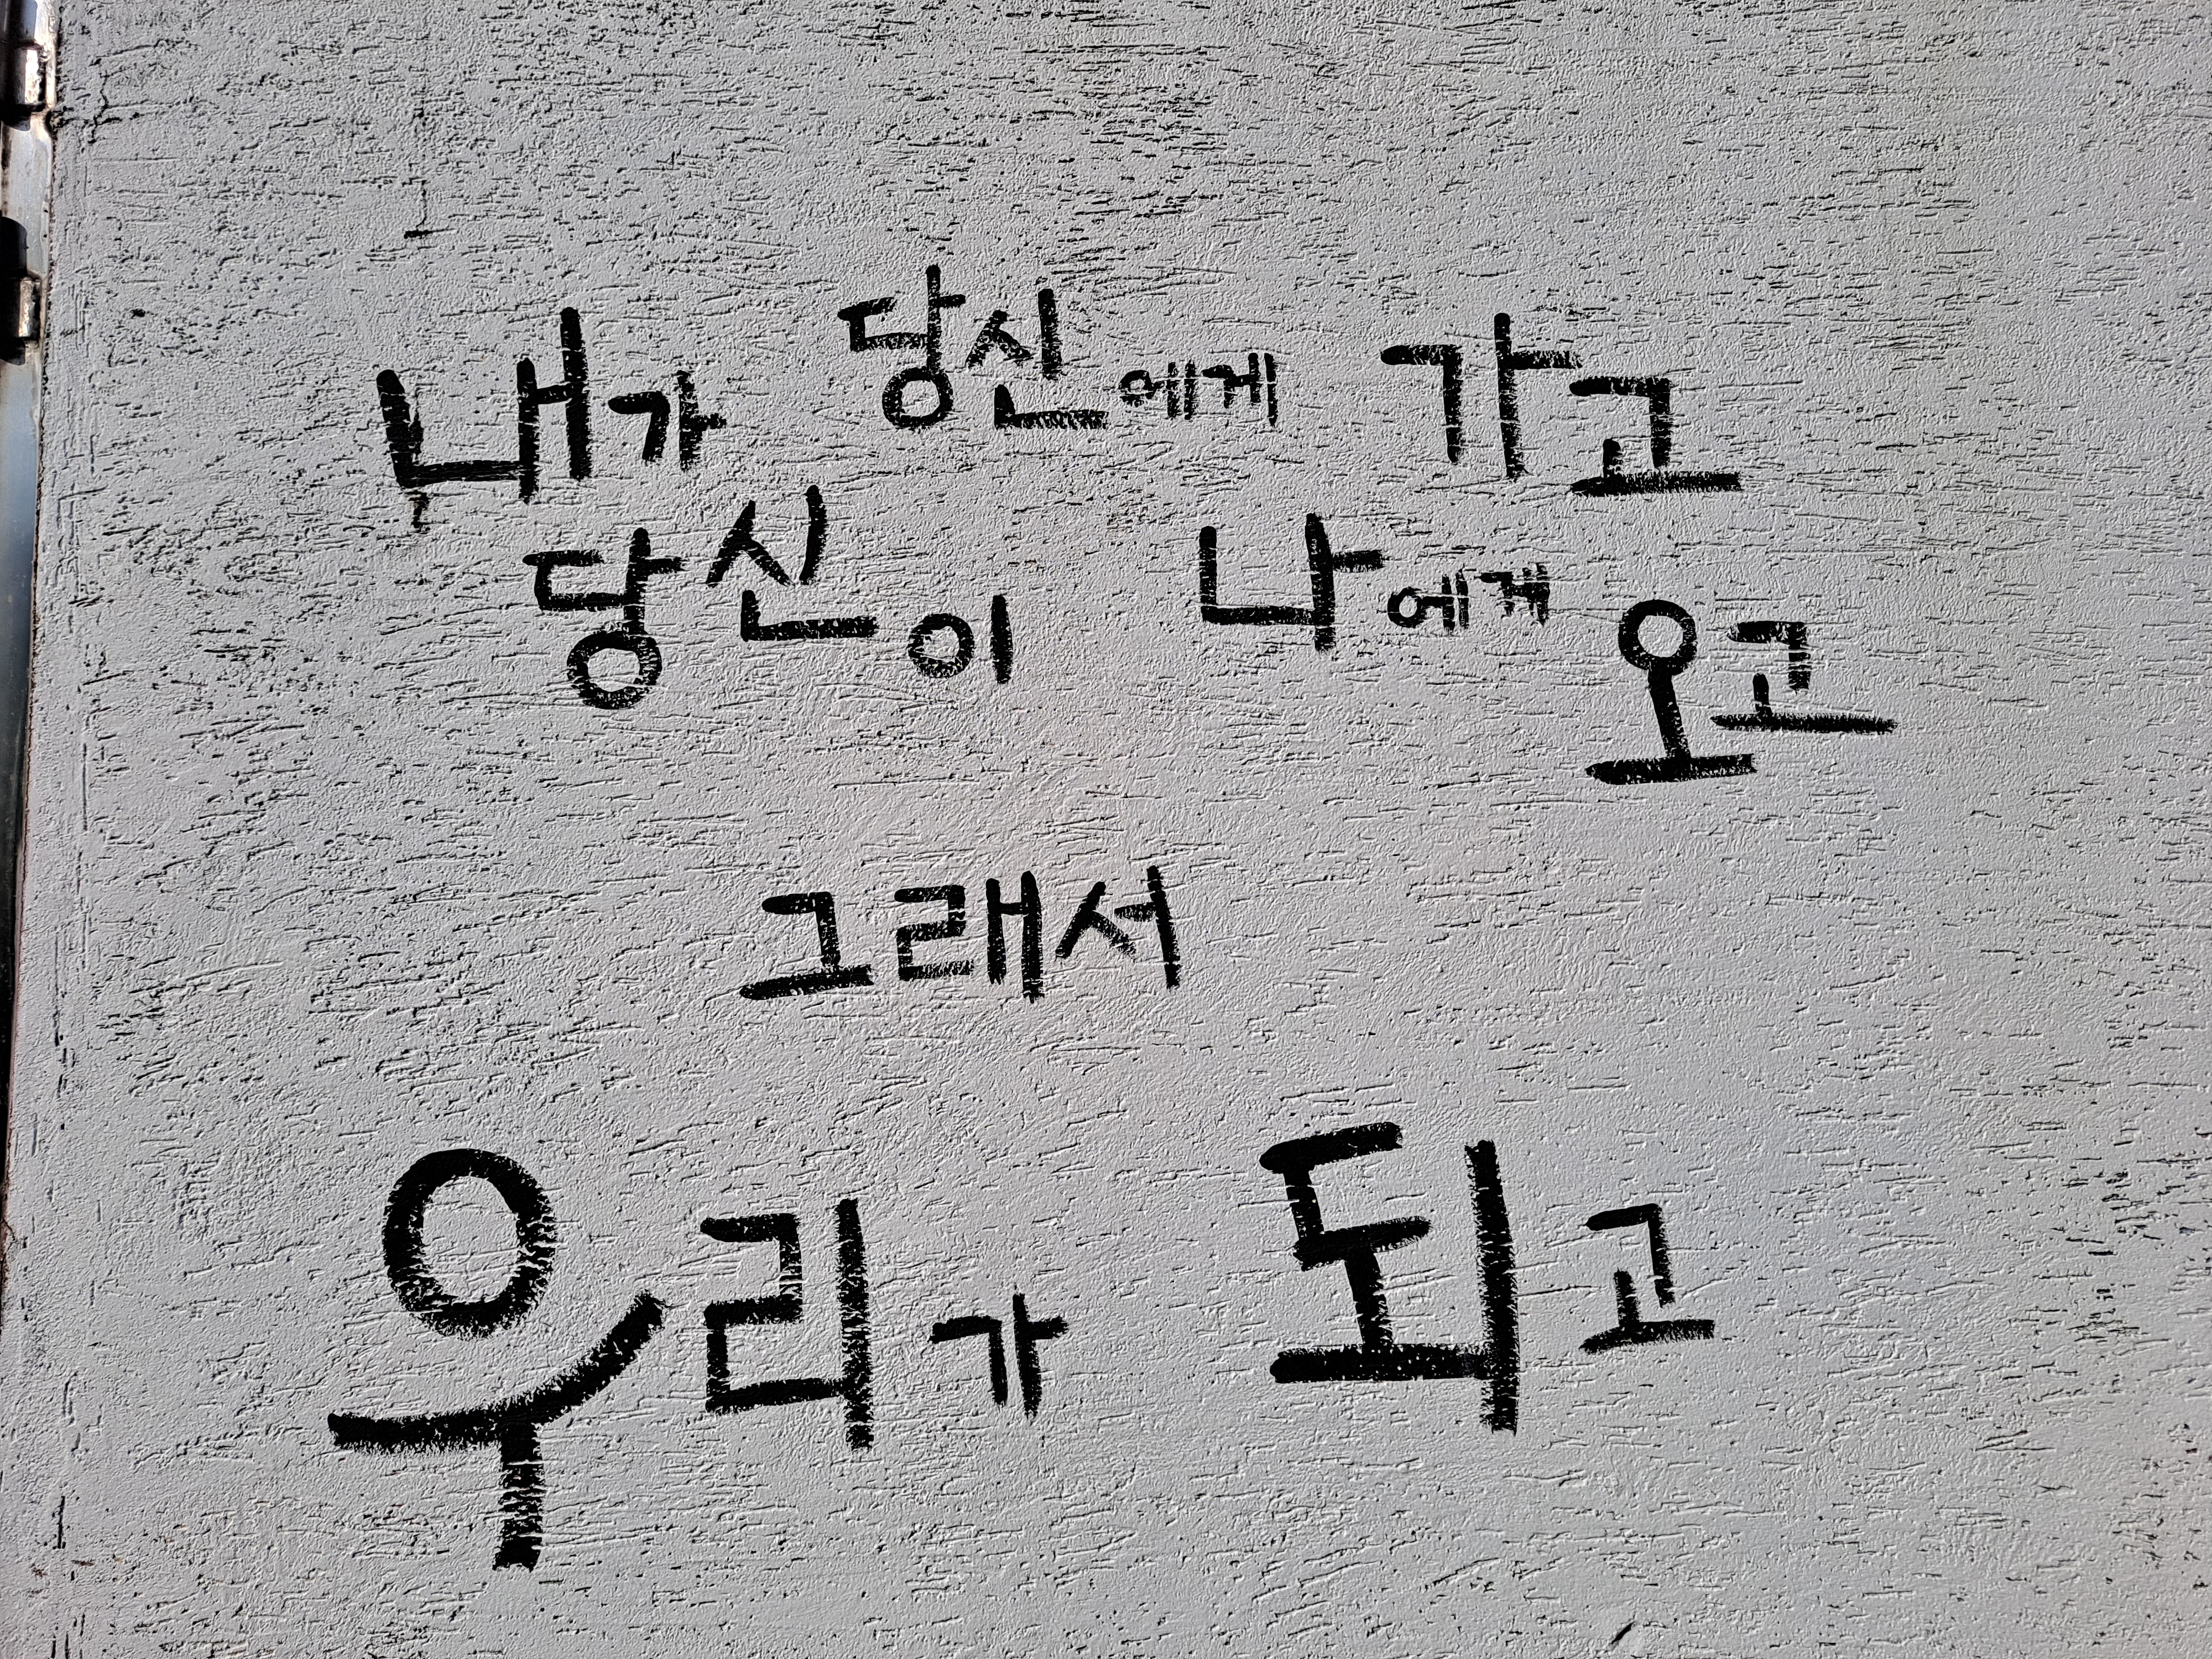 내가 당신에게 가고
당신이 나에게 오고
그래서
우리가 되고